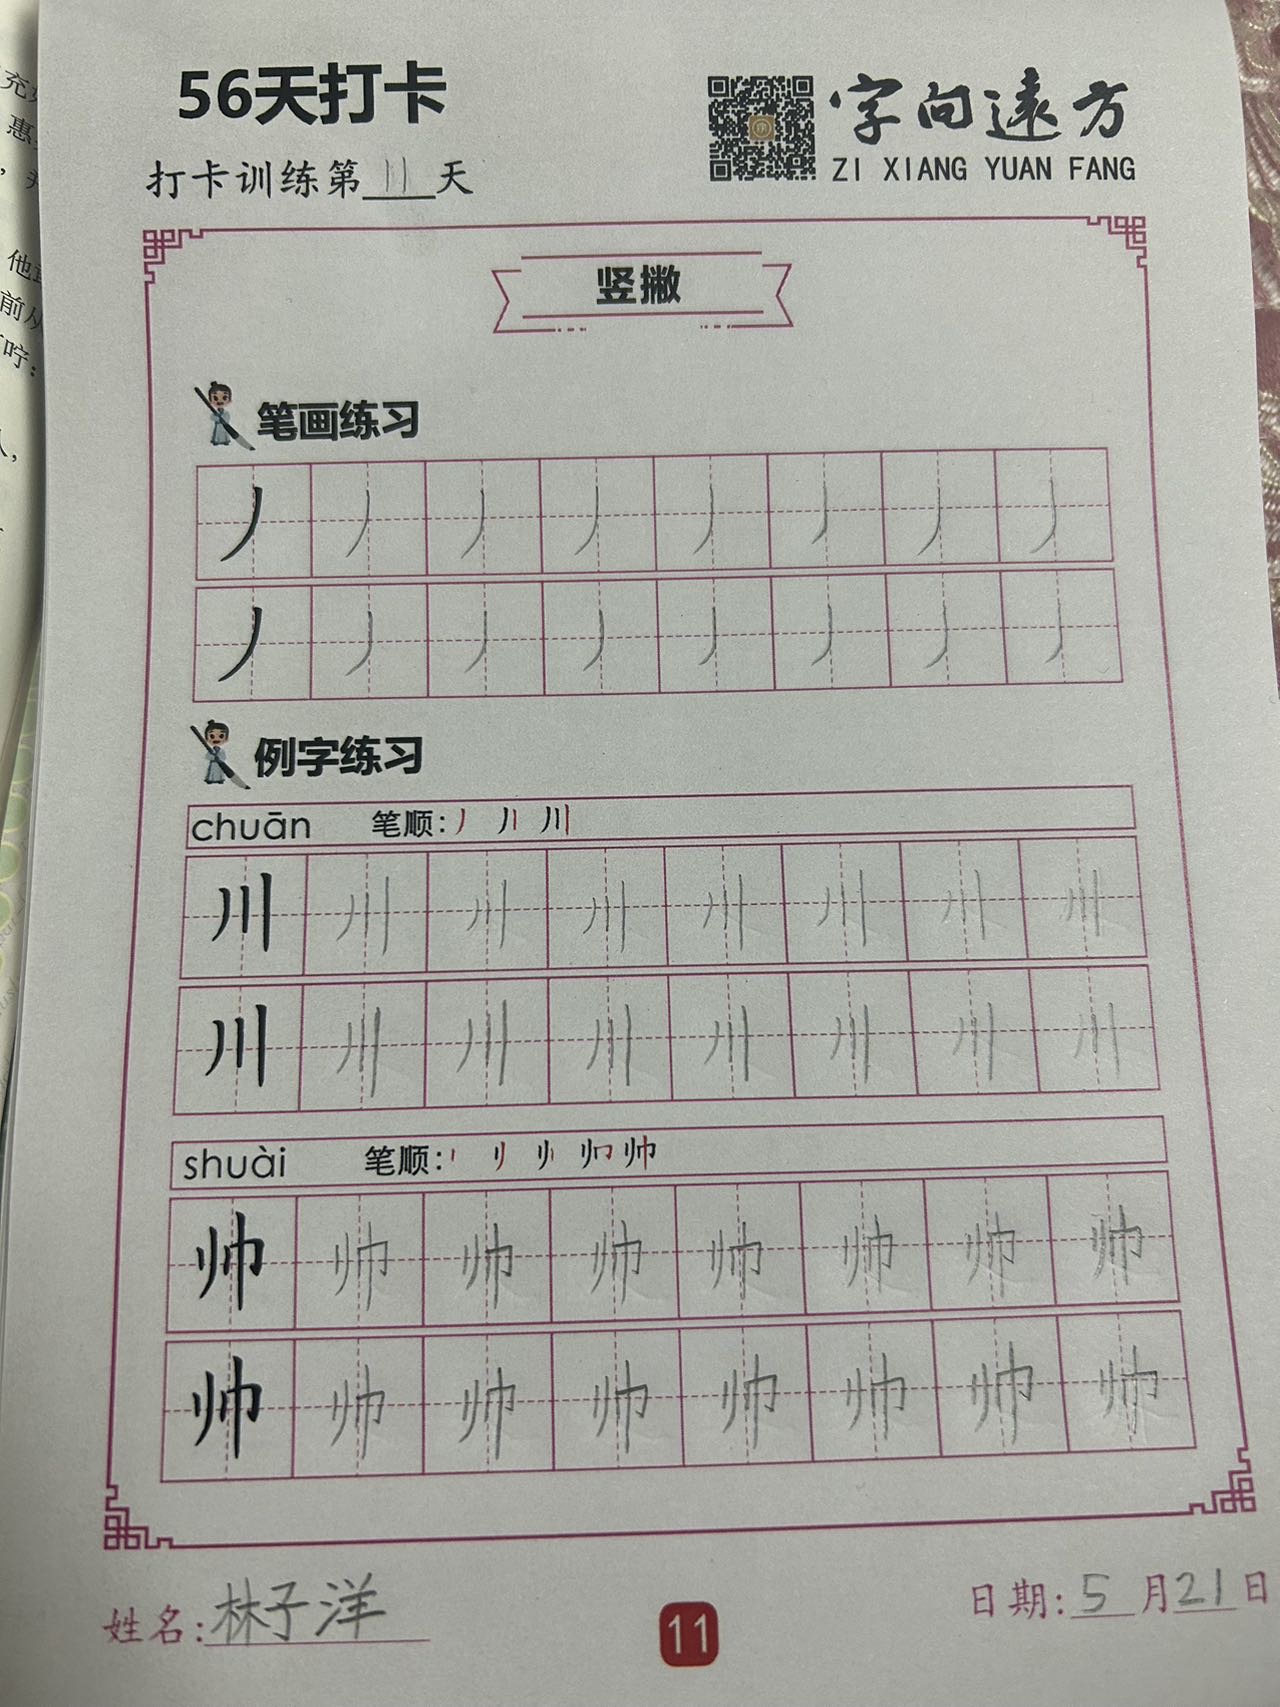 56天打卡
字向遠方
打卡训练第11天
ZI XIANG YUAN FANG
竖撇
笔画练习
丿 丿 丿 丿 丿 丿 丿 丿
丿 丿 丿 丿 丿 丿 丿 丿
例字练习
chuān 笔顺: 丿 川
川 川 川 川 川 川 川 川
川 川 川 川 川 川 川 川
shuài 笔顺: 帅
帅 帅 帅 帅 帅 帅 帅 帅
帅 帅 帅 帅 帅 帅 帅 帅
姓名:林子洋
11
日期:5月21日